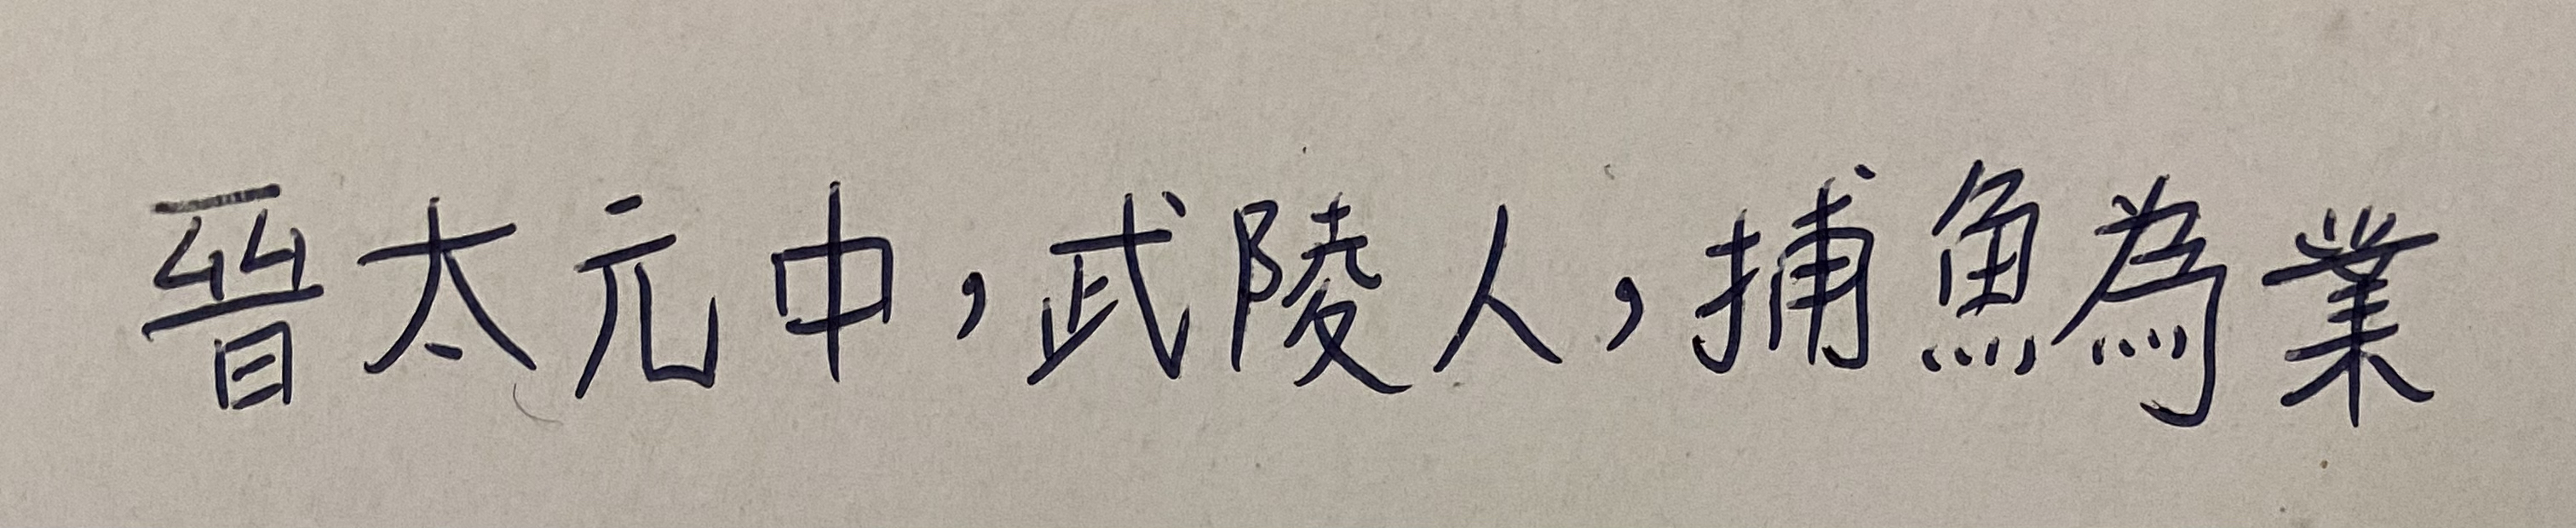 晉太元中，武陵人，捕魚為業